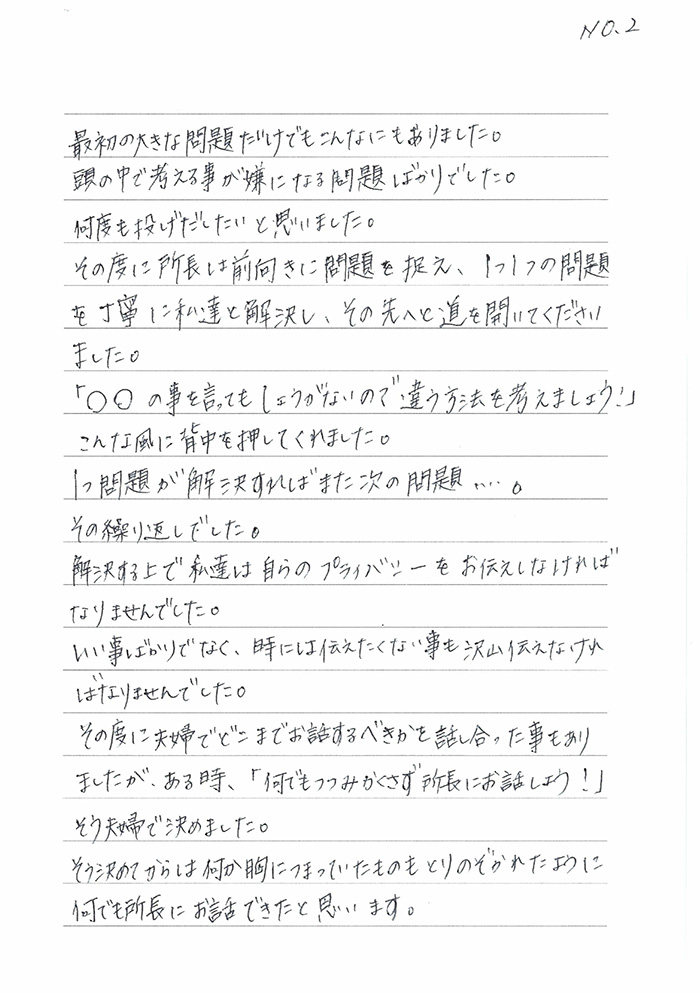 NO.2
最初の大きな問題だけでもこんなにもありました。
頭の中で考える事が嫌になる問題ばかりでした。
何度も投げだしたいと思いました。
その度に所長は前向きに問題を捉え、1つ1つの問題
を丁寧に私達と解決し、その先へと道を開いてください
ました。
「○○の事を言ってもしょうがないので違う方法を考えましょう!」
こんな風に背中を押してくれました。
1つ問題が解決すればまた次の問題....。
その繰り返しでした。
解決する上で私達は自らのプライバシーをお伝えしなければ
なりませんでした。
いい事ばかりでなく、時には伝えたくない事も沢山伝えなけれ
ばなりませんでした。
その度に夫婦でどこまでお話するべきかを話し合った事もあり
ましたが、ある時、「何でもつつみかくさず所長にお話しよう!」
そう夫婦で決めました。
そう決めてからは何か胸につまっていたものもとりのぞかれたように
何でも所長にお話できたと思います。